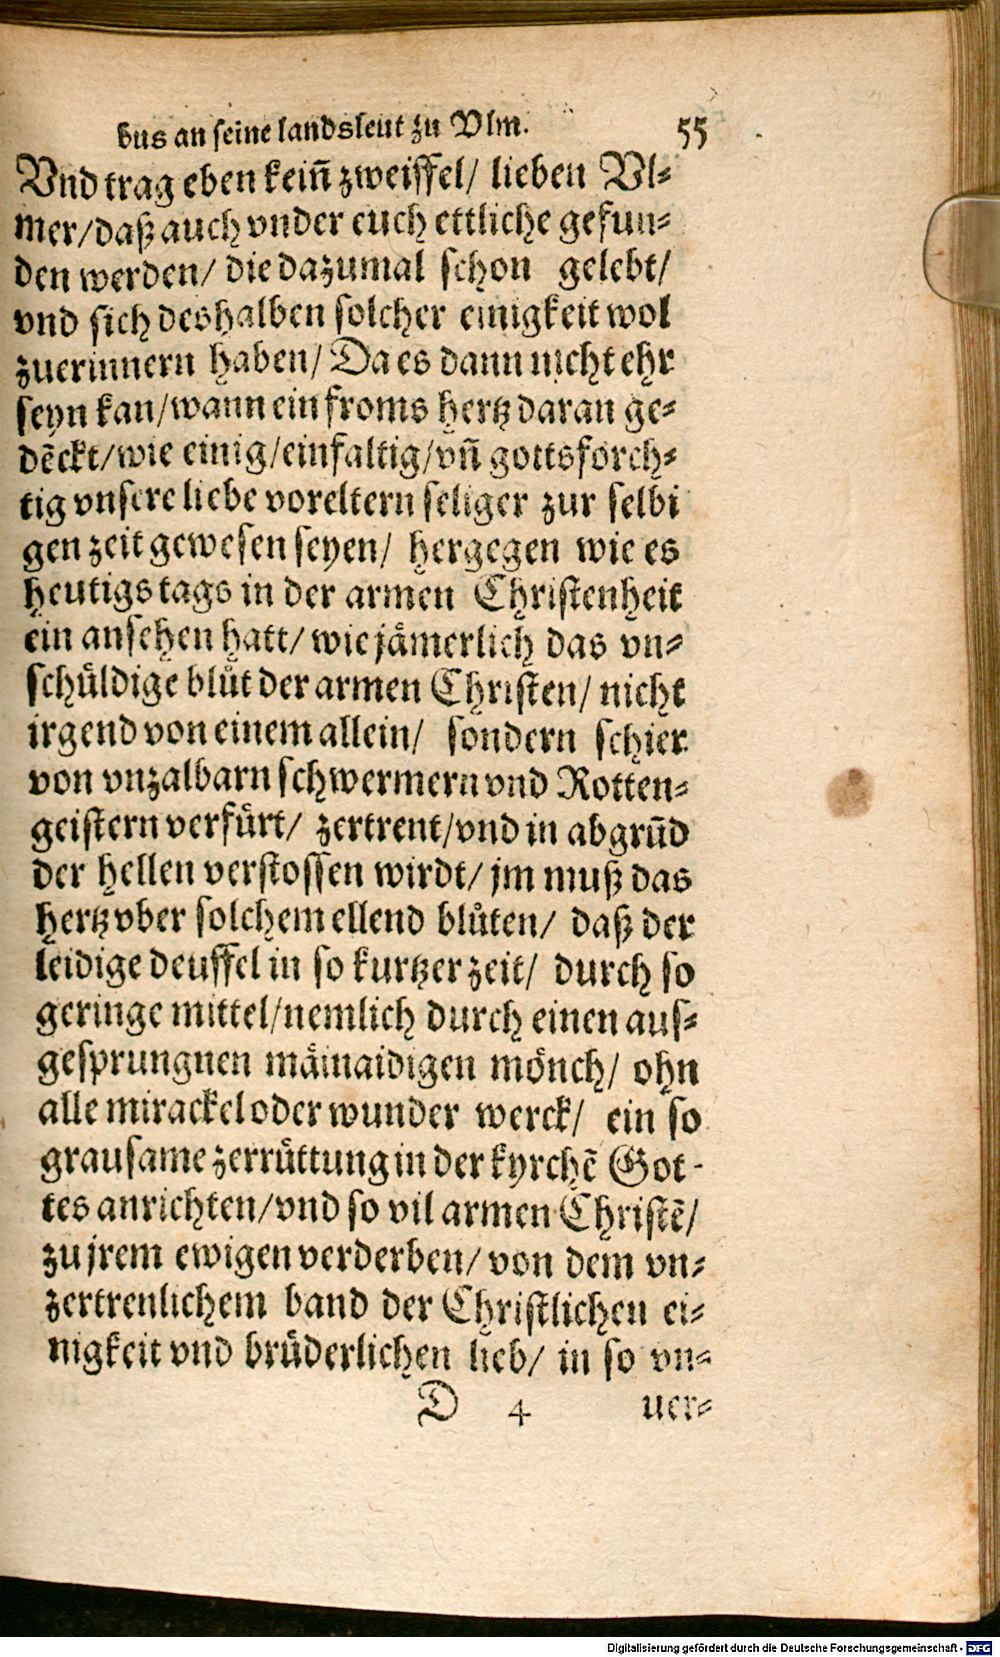 bus an seine landsleut zu Vlm. 55
Vnd trag eben keiñ zweiffel/ lieben Vl⸗
mer/daß auch vnder euch ettliche gefun⸗
den werden/ die dazumal schon gelebt/
vnd sich deshalben solcher einigkeit wol
zuerinnern haben/ Da es dann nicht ehr
seyn kan/wann ein froms hertz daran ge⸗
dẽckt/wie einig/einfaltig/vñ gottsforch⸗
tig vnsere liebe voreltern seliger zur selbi
gen zeit gewesen seyen/ hergegen wie es
heutigs tags in der armen Christenheit
ein ansehen hatt/ wie jämerlich das vn⸗
schüldige blůt der armen Christen/ nicht
irgend von einem allein/ sondern schier
von vnzalbarn schwermern vnd Rotten⸗
geistern verfürt/ zertrent/vnd in abgrũd
der hellen verstossen wirdt/ jm muß das
hertz vber solchem ellend blůten/ daß der
leidige deuffel in so kurtzer zeit/ durch so
geringe mittel/nemlich durch einen aus⸗
gesprungnen mäinaidigen mönch/ ohn
alle mirackel oder wunder werck/ ein so
grausame zerrüttung in der kyrchẽ Got-
tes anrichten/vnd so vil armen Christẽ/
zu jrem ewigen verderben/ von dem vn⸗
zertrenlichem band der Christlichen ei⸗
nigkeit vnd brüderlichen lieb/ in so vn⸗
D 4 uer⸗
Digitalisierung gefördert durch die Deutsche Forschungsgemeinschaft - DFG